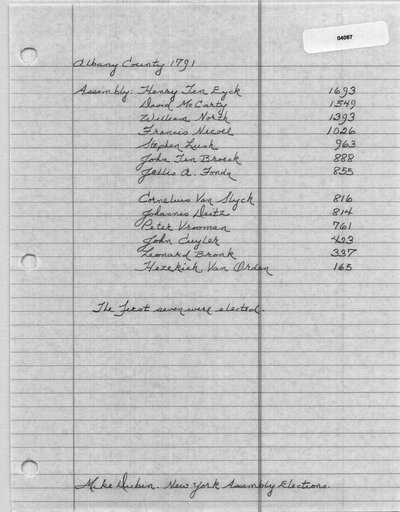 04087
Albany County 1791
Assembly: Henry Ten Eyck 1693
David McCarty 1549
William North 1393
Francis Nicoll 1026
Stephen Lush 963
John Ten Broeck 888
Jellis A. Fonda 855
Cornelius Van Slyck 816
Johannis Deitz 814
Peter Vrooman 761
John Cuyler 423
Leonard Bronk 337
Hezekiah Van Orden 165
The first seven were elected.
Mike Dubin. New York Assembly Elections.